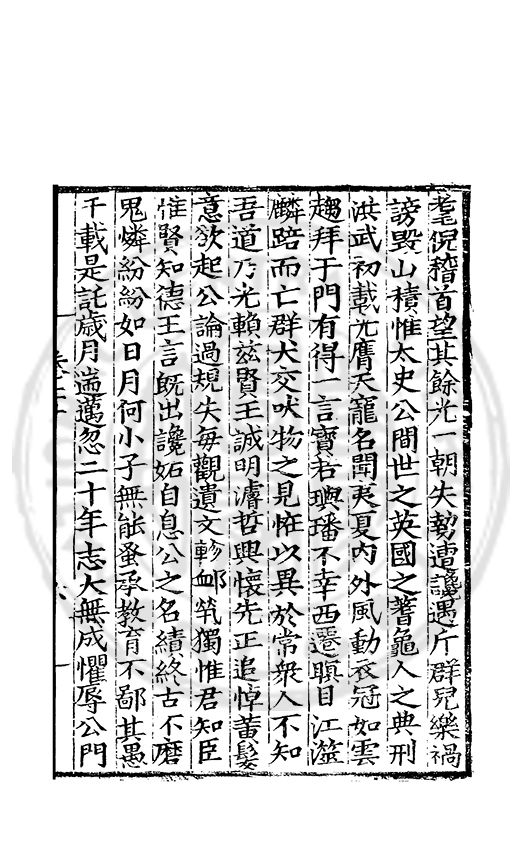 耄倪稽首望其餘光一朝失勢遭讒遇斥群兒樂禍
謗毀山積惟太史公間世之英國之蓍龜人之典刑
洪武初載尤膺天寵名聞夷夏内外風動衣冠如雲
趨拜于門有得一言寶若璵璠不幸西遷瞑目江
麟踣而亡群犬交吠物之見恠以異於常衆人不知
吾道乃光賴兹賢王誠明濬哲興懷先正追悼
意欲起公論過規失每觀遺文軫邺筑獨惟君知臣
惟賢知德王言既出讒妬自息公之名績終古不磨
鬼憐紛紛如日月何小子無能蚤承教育不鄙其愚
千載是託歲月遄邁忽二十年志大無成懼辱公門